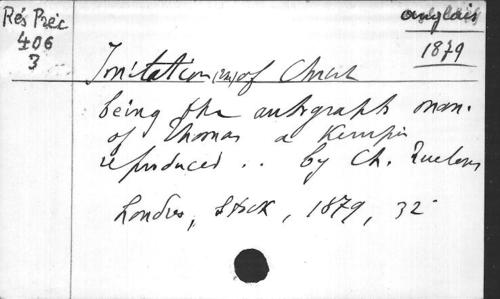 Rés Préc
406
3
anglais
1879
Imitation (The) of Christ
being the autograph man.
of Thomas a Kempis
reproduced .. by Ch. Ruelens
Londres, Stock, 1879, 32°